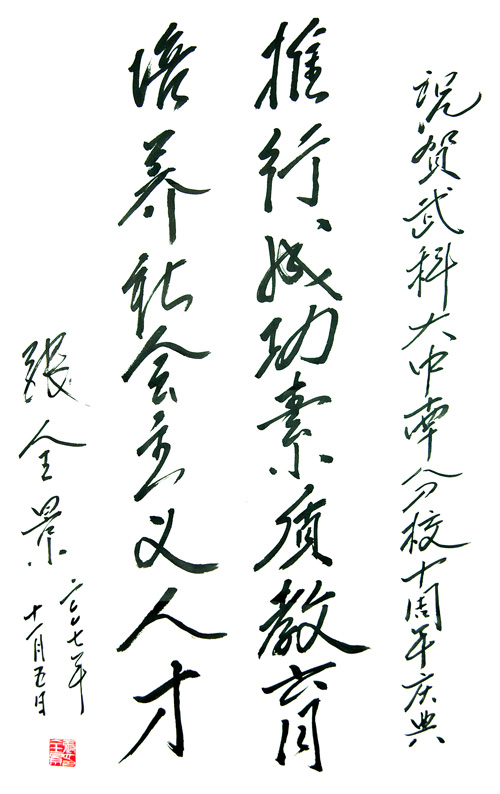 祝贺武科大中南分校十周年庆典
推行成功素质教育
培养社会主义人才
张全景
二〇〇七年
十一月五日